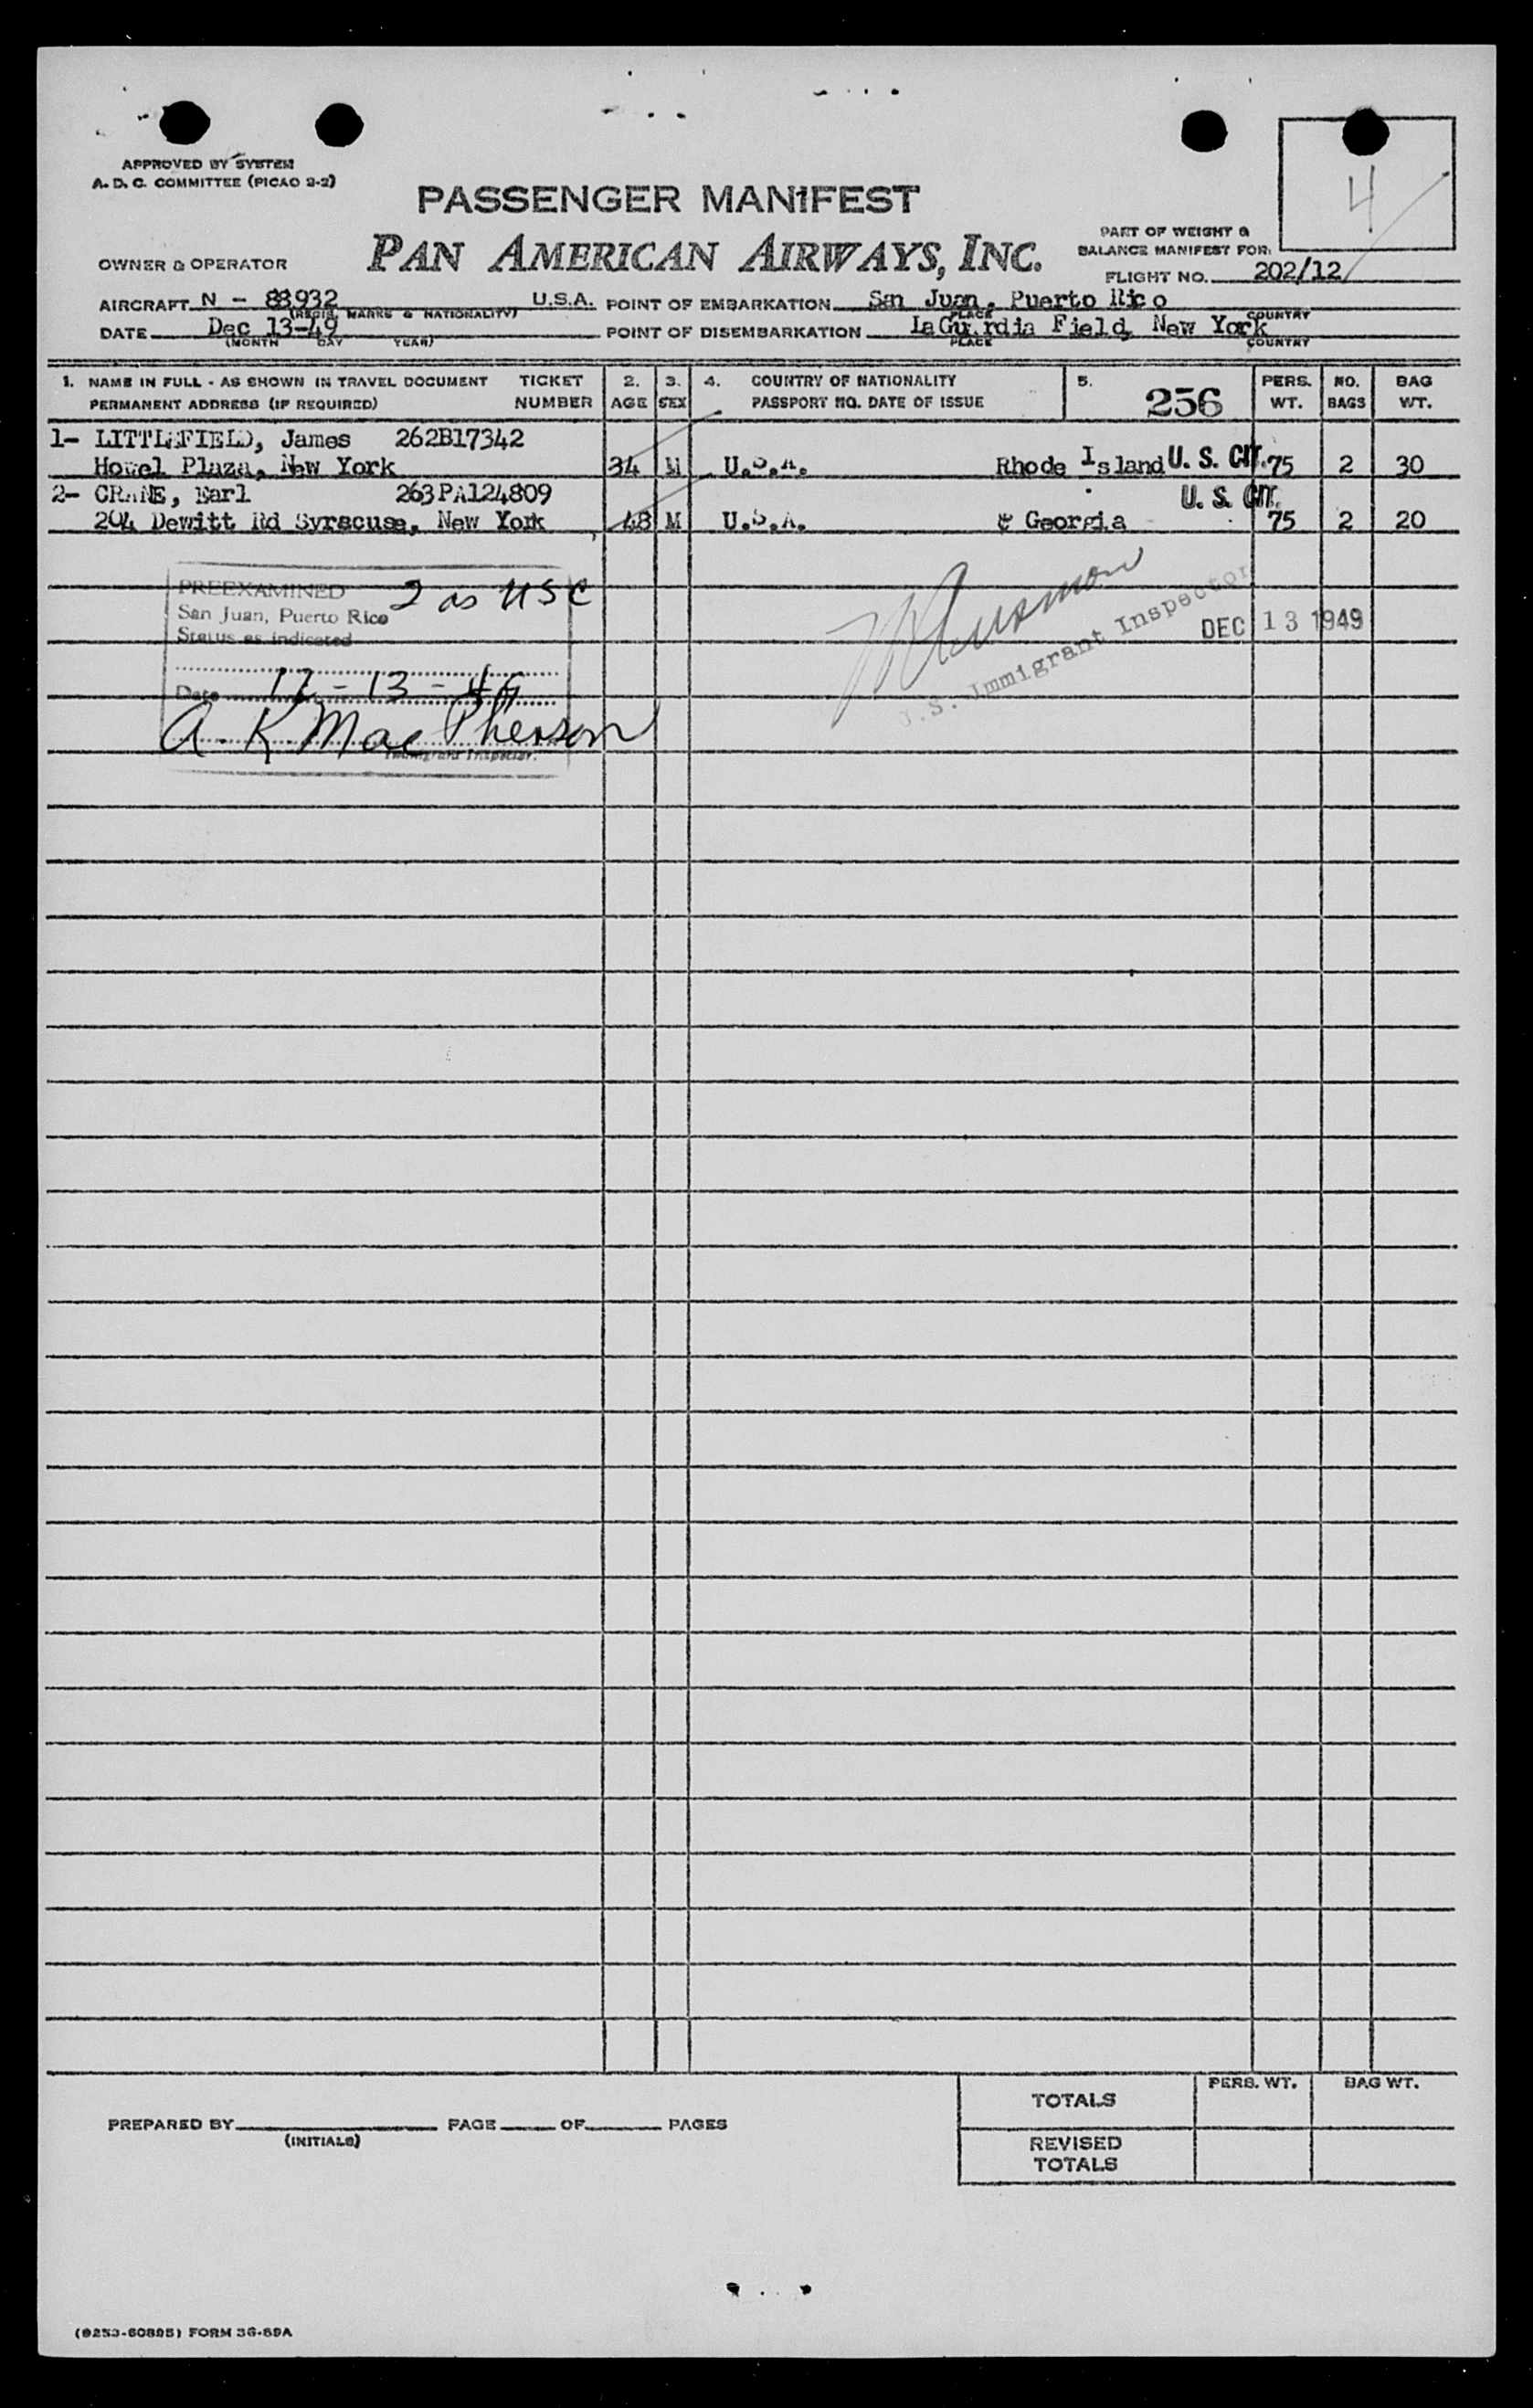 APPROVED BY SYSTEM
A. D. C. COMMITTEE (PICAO 2-2)
4
PASSENGER MANIFEST
PAN AMERICAN AIRWAYS, INC.
OWNER & OPERATOR
PART OF WEIGHT &
BALANCE MANIFEST FOR:
FLIGHT NO. 202/12
AIRCRAFT N - 88932 U.S.A. POINT OF EMBARKATION San Juan, Puerto Rico
(REGIS. MARKS & NATIONALITY) PLACE COUNTRY
DATE Dec 13-49 POINT OF DISEMBARKATION LaGuardia Field, New York
(MONTH DAY YEAR) PLACE COUNTRY
1. NAME IN FULL - AS SHOWN IN TRAVEL DOCUMENT TICKET 2. 3. 4. COUNTRY OF NATIONALITY 5. 256 PERS. NO. BAG
PERMANENT ADDRESS (IF REQUIRED) NUMBER AGE SEX PASSPORT NO. DATE OF ISSUE WT. BAGS WT.
1- LITTLEFIELD, James 262B17342
Howel Plaza, New York 34 M U.S.A. Rhode Island U. S. CIT. 75 2 30
2- CRANE, Earl 263PA124809 U. S. CIT.
204 Dewitt Rd Syracuse, New York 48 M U.S.A. Georgia 75 2 20
PREEXAMINED 2 as USC
San Juan, Puerto Rico
Status as indicated
Date 12-13-49
A. K. MacPherson
Immigrant Inspector.
U.S. Immigrant Inspector
DEC 13 1949
TOTALS PERS. WT. BAG WT.
PREPARED BY PAGE OF PAGES
(INITIALS)
REVISED
TOTALS
(9253-60895) FORM 36-89A